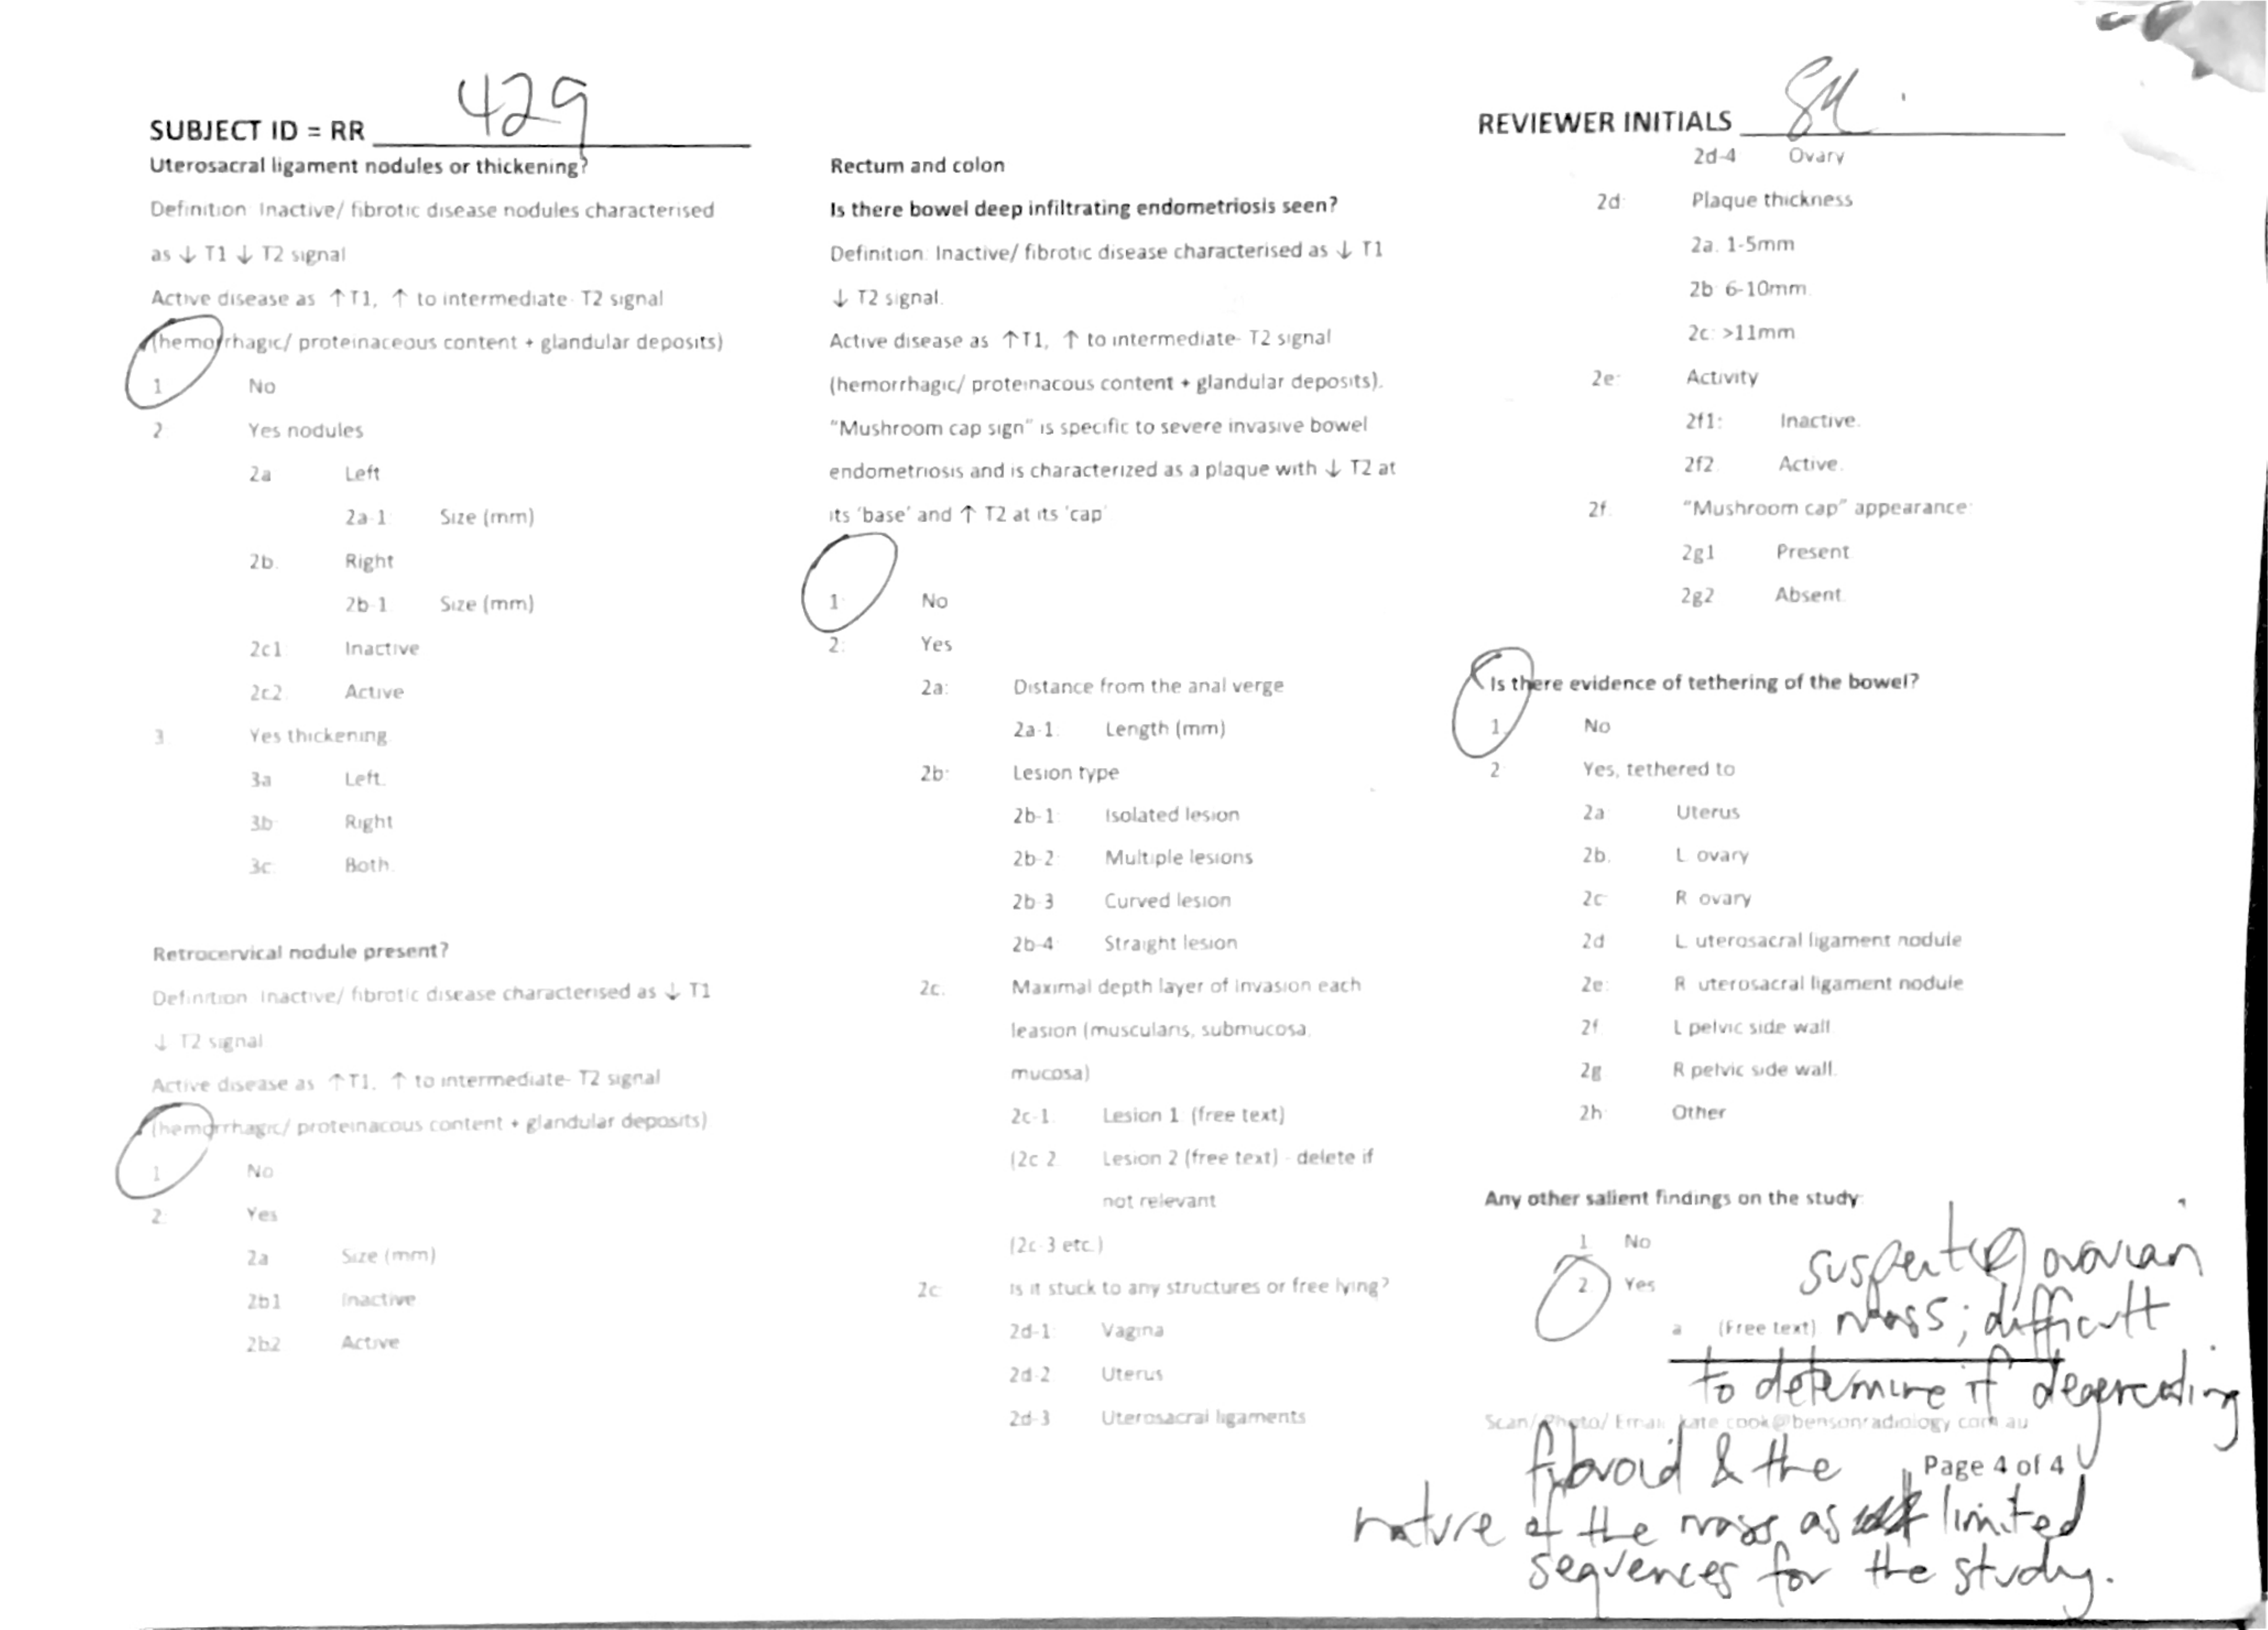 SUBJECT ID = RR 429
Uterosacral ligament nodules or thickening?
Definition Inactive/ fibrotic disease nodules characterised
as ↓ T1 ↓ T2 signal
Active disease as ↑T1, ↑ to intermediate- T2 signal
(hemorrhagic/ proteinaceous content + glandular deposits)
1 No
2 Yes nodules
2a Left
2a-1: Size (mm)
2b. Right
2b-1 Size (mm)
2c1 Inactive
2c2 Active
3. Yes thickening
3a Left.
3b Right
3c. Both.
Retrocervical nodule present?
Definition Inactive/ fibrotic disease characterised as ↓ T1
↓ T2 signal
Active disease as ↑T1, ↑ to intermediate- T2 signal
(hemorrhagic/ proteinacous content + glandular deposits)
1 No
2. Yes
2a Size (mm)
2b1 Inactive
2b2 Active
Rectum and colon
Is there bowel deep infiltrating endometriosis seen?
Definition: Inactive/ fibrotic disease characterised as ↓ T1
↓ T2 signal.
Active disease as ↑T1, ↑ to intermediate- T2 signal
(hemorrhagic/ proteinacous content + glandular deposits).
“Mushroom cap sign” is specific to severe invasive bowel
endometriosis and is characterized as a plaque with ↓ T2 at
its ‘base’ and ↑ T2 at its ‘cap’
1: No
2: Yes
2a: Distance from the anal verge
2a-1. Length (mm)
2b: Lesion type
2b-1: Isolated lesion
2b-2: Multiple lesions
2b-3 Curved lesion
2b-4: Straight lesion
2c. Maximal depth layer of invasion each
leasion (muscularis, submucosa,
mucosa)
2c-1. Lesion 1 (free text)
(2c-2 Lesion 2 (free text) - delete if
not relevant
(2c-3 etc.)
2c: Is it stuck to any structures or free lying?
2d-1: Vagina
2d-2 Uterus
2d-3 Uterosacral ligaments
REVIEWER INITIALS SM
2d-4 Ovary
2d: Plaque thickness
2a. 1-5mm
2b: 6-10mm.
2c: >11mm
2e: Activity
2f1: Inactive.
2f2 Active.
2f. “Mushroom cap” appearance:
2g1 Present
2g2 Absent.
Is there evidence of tethering of the bowel?
1. No
2 Yes, tethered to
2a Uterus
2b. L ovary
2c R ovary
2d L uterosacral ligament nodule
2e: R uterosacral ligament nodule
2f L pelvic side wall
2g R pelvic side wall.
2h Other
Any other salient findings on the study:
1 No
2. Yes
a (Free text)
suspected ovarian
mass; difficult
to determine if degenerating
fibroid & the
nature of the mass as limited
sequences for the study.
Scan/ Photo/ Email kate.cook@bensonradiology.com.au
Page 4 of 4